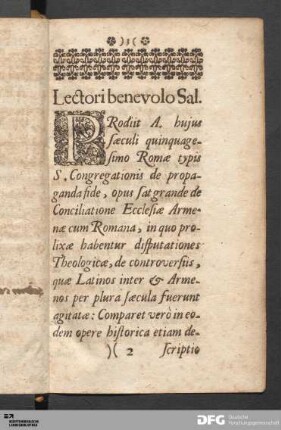 ❁):(❁
Lectori benevolo Sal.
PRodiit A. hujus
sæculi quinquage-
simo Romæ typis
S. Congregationis de propa-
ganda fide, opus sat grande de
Conciliatione Ecclesiæ Arme-
næ cum Romana, in quo pro-
lixæ habentur disputationes
Theologicæ, de controversiis,
quæ Latinos inter & Arme-
nos per plura sæcula fuerunt
agitatæ: Comparet verò in eo-
dem opere historica etiam de-
)( 2 scriptio
DFG Deutsche
Forschungsgemeinschaft